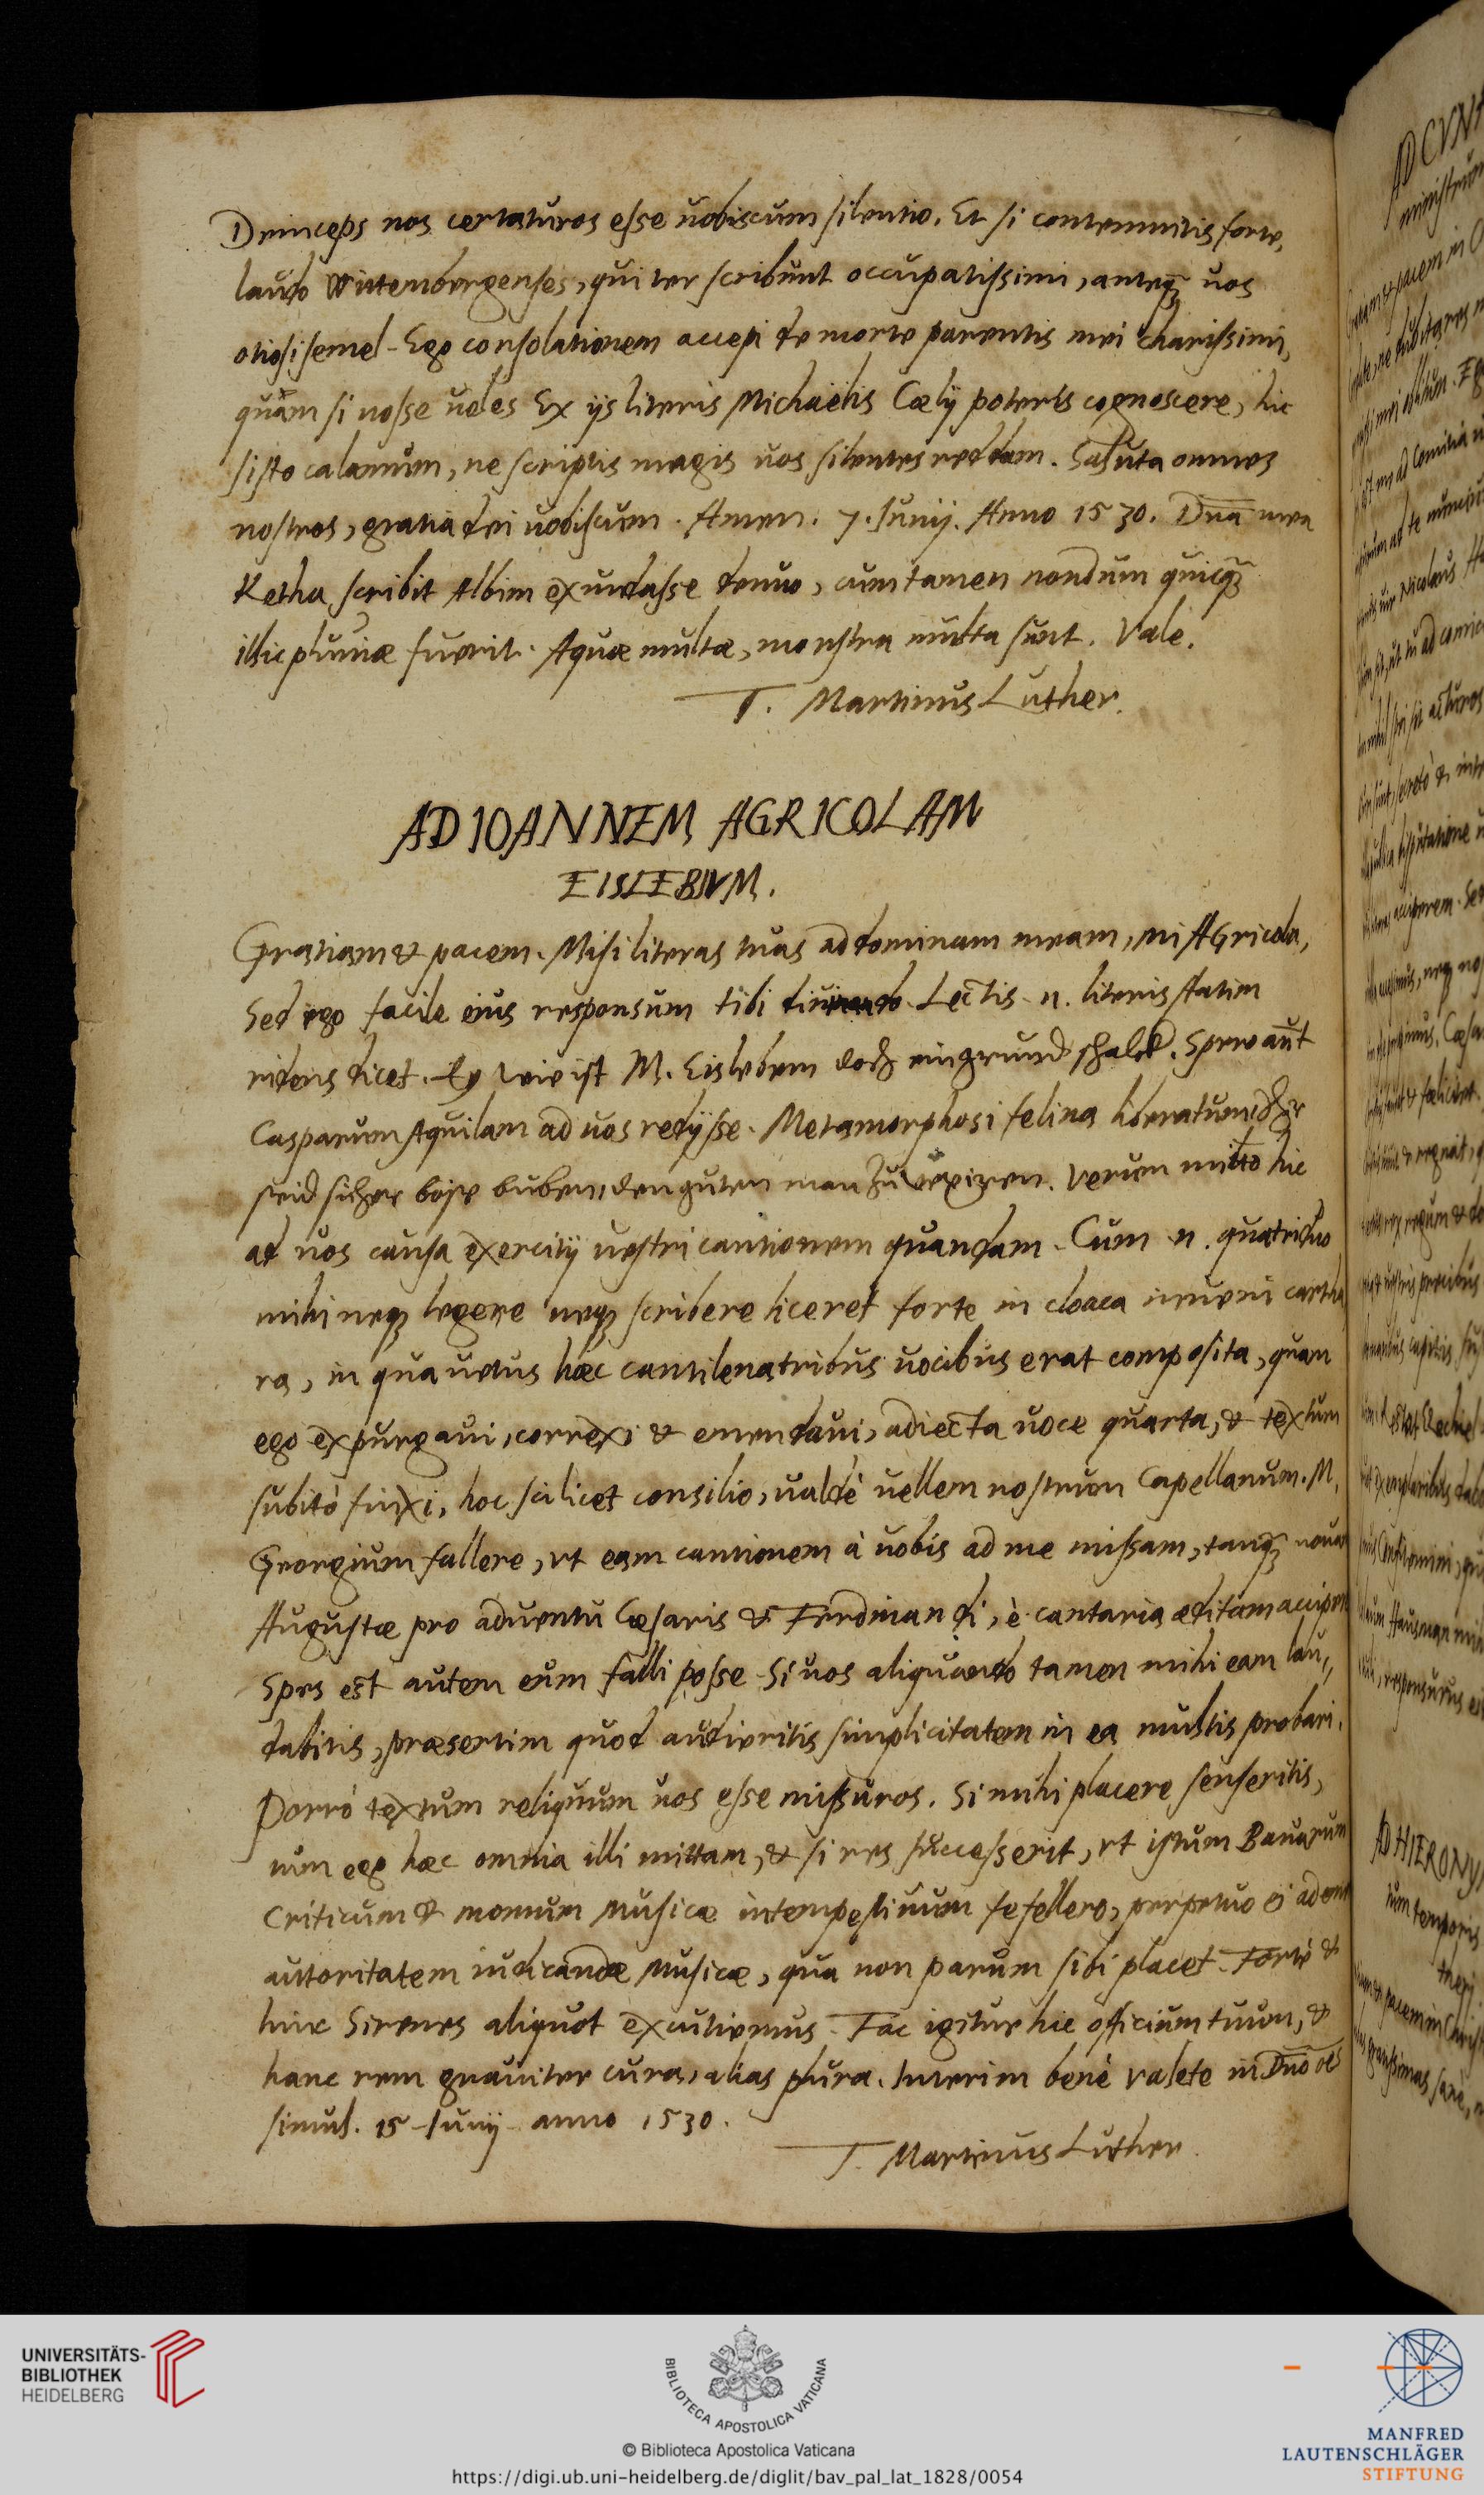 Deinceps nos certaturos esse uobiscum silentio. Et si contemnitis forte,
laudo Wittembergenses, qui ter scribunt occupatissimi, anteqȝ uos
otiosi semel. Ego consolationem accepi de morte parentis mei charissimi,
quàm si nosse uoles Ex ijs literis Michaëlis Cœlij poteris cognoscere, hic
sisto calamum, ne scriptis magis uos silentes reddam. Saluta omnes
nostros, gratia dei uobiscum. Amen. 7. Iunij. Anno 1530. Dna mea
Ketha scribit Albim exundasse denuo, cum tamen nondum quicqȝ
illic pluuiæ fuerit. Aquæ multæ, monstra multa sunt. Vale.
T. Martinus Luther.
AD IOANNEM AGRICOLAM
EISLEBIVM.
Gratiam & pacem. Misi literas tuas ad dominam meam, mi AGricola,
Sed ego facile eius responsum tibi diuinabo. Lectis n. literis statim
ridens dicet. Ey wie ist M. Eisleben doch ein grund schalck. Spero aut
Casparum Aquilam ad uos redijsse. Metamorphosi felina liberatum,
seid sicher böse buben, den guten man zu vexiren. Verum mitto hic
ad uos causa exercitij uestri cantionem quandam. Cum n. quatriduo
mihi neqȝ legere neqȝ scribere liceret forte in cloaca inueni cartha
ra, in qua uetus hæc cantilena tribus uocibus erat composita, quam
ego expurgaui, correxi & emendaui, adiecta uoce quarta, & textum
subitò finxi, hoc scilicet consilio, ualdè uellem nostrum Capellanum. M.
Georgium fallere, vt eam cantionem à uobis ad me missam, tanqȝ nouam
Augustæ pro aduentu Cæsaris & Ferdinandi, è cantaria æditam acciperet
Spes est autem eum falli posse. Si uos aliquando tamen mihi eam lau,,
dabitis, præsertim quod audieritis simplicitatem in ea multis probari.
Porrò textum reliquum uos esse missuros. Si mihi placere senseritis,
tum ego hæc omnia illi mittam, & si res successerit, vt istum Bauarum
Criticum & momum Musicæ intempestiuum fefellero, perpetuo ei adem
autoritatem iudicandæ Musicæ, qua non parum sibi placet. Fortè &
hinc Sirenes aliquot excutiemus. Fac igitur hic officium tuum, &
hanc rem gnauiter cura, alias plura. Interim benè valete in Dno oēs
simul. 15 Iunij anno 1530.
T. Martinus Luther.
AD HIERONY
UNIVERSITÄTS-
BIBLIOTHEK
HEIDELBERG
BIBLIOTECA APOSTOLICA VATICANA
© Biblioteca Apostolica Vaticana
https://digi.ub.uni-heidelberg.de/diglit/bav_pal_lat_1828/0054
MANFRED
LAUTENSCHLÄGER
STIFTUNG